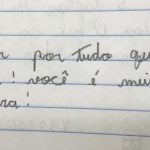 por tudo que
! você é mui
ra!